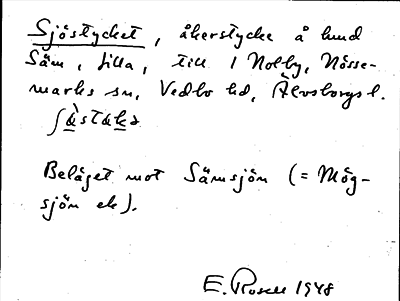 Sjöstycket, åkerstycke å
Säm, Lilla, till 1 Nolby, Nösse-
marks sn, Vedbo hd, Älvsborgs l.
Beläget mot Sämsjön (= Mög-
sjön ek).
E. Rosell 1948